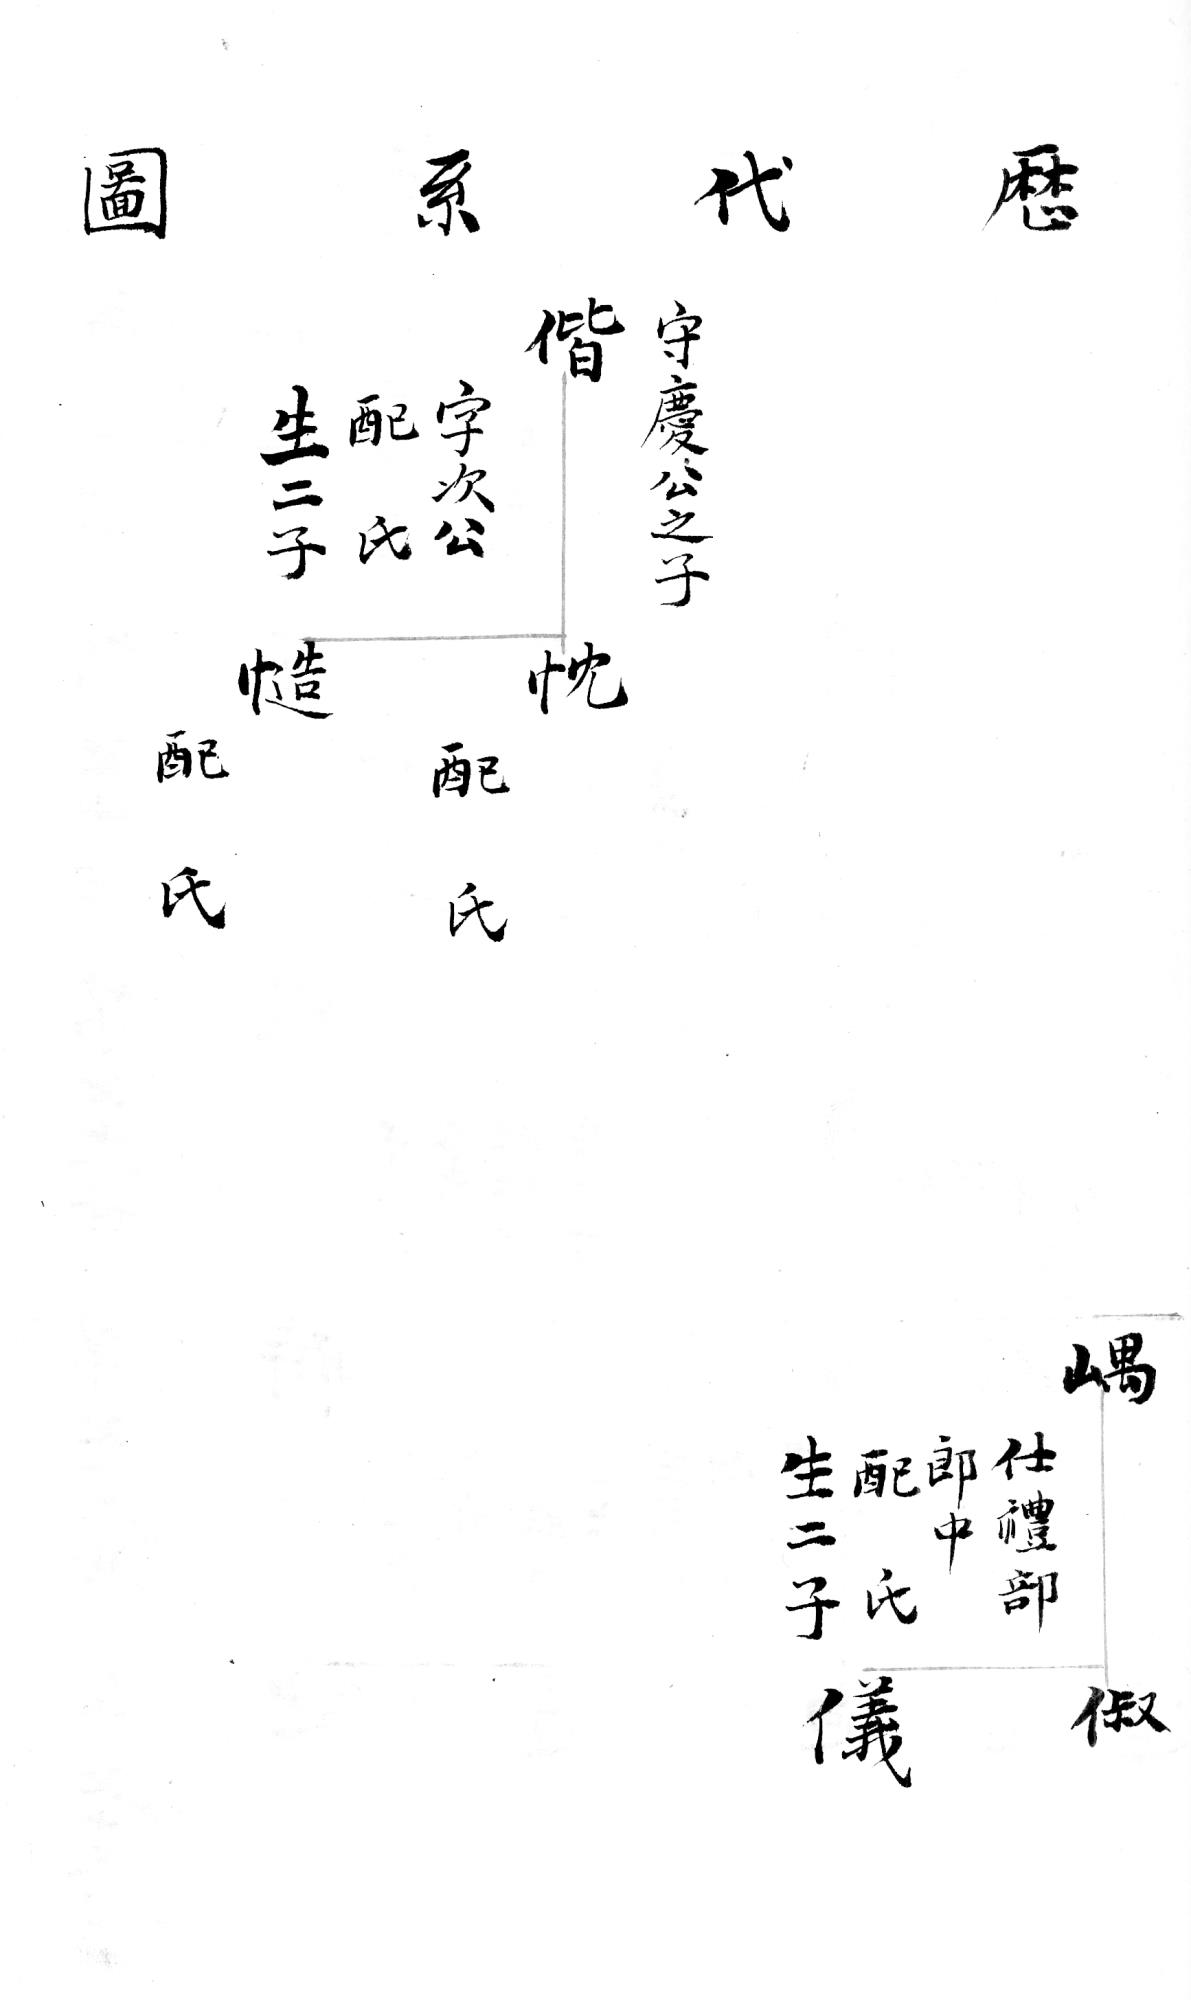 歷代系圖
守慶公之子
偕
字次公
配 氏
生二子
忱
配 氏
慥
配 氏
嵎
仕禮部
郎中
配 氏
生二子
俶
儀